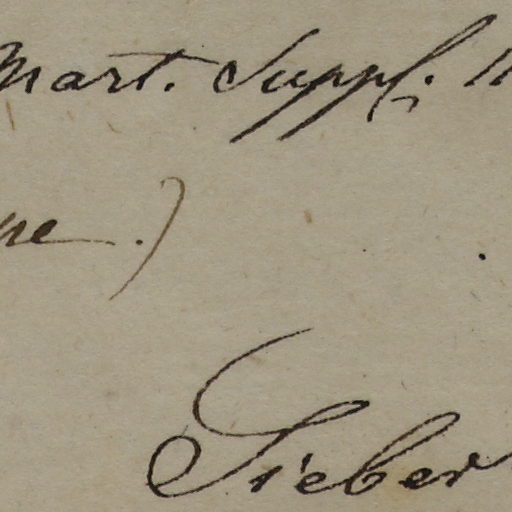 Mart. Suppl. 11
ne.)
Sieber